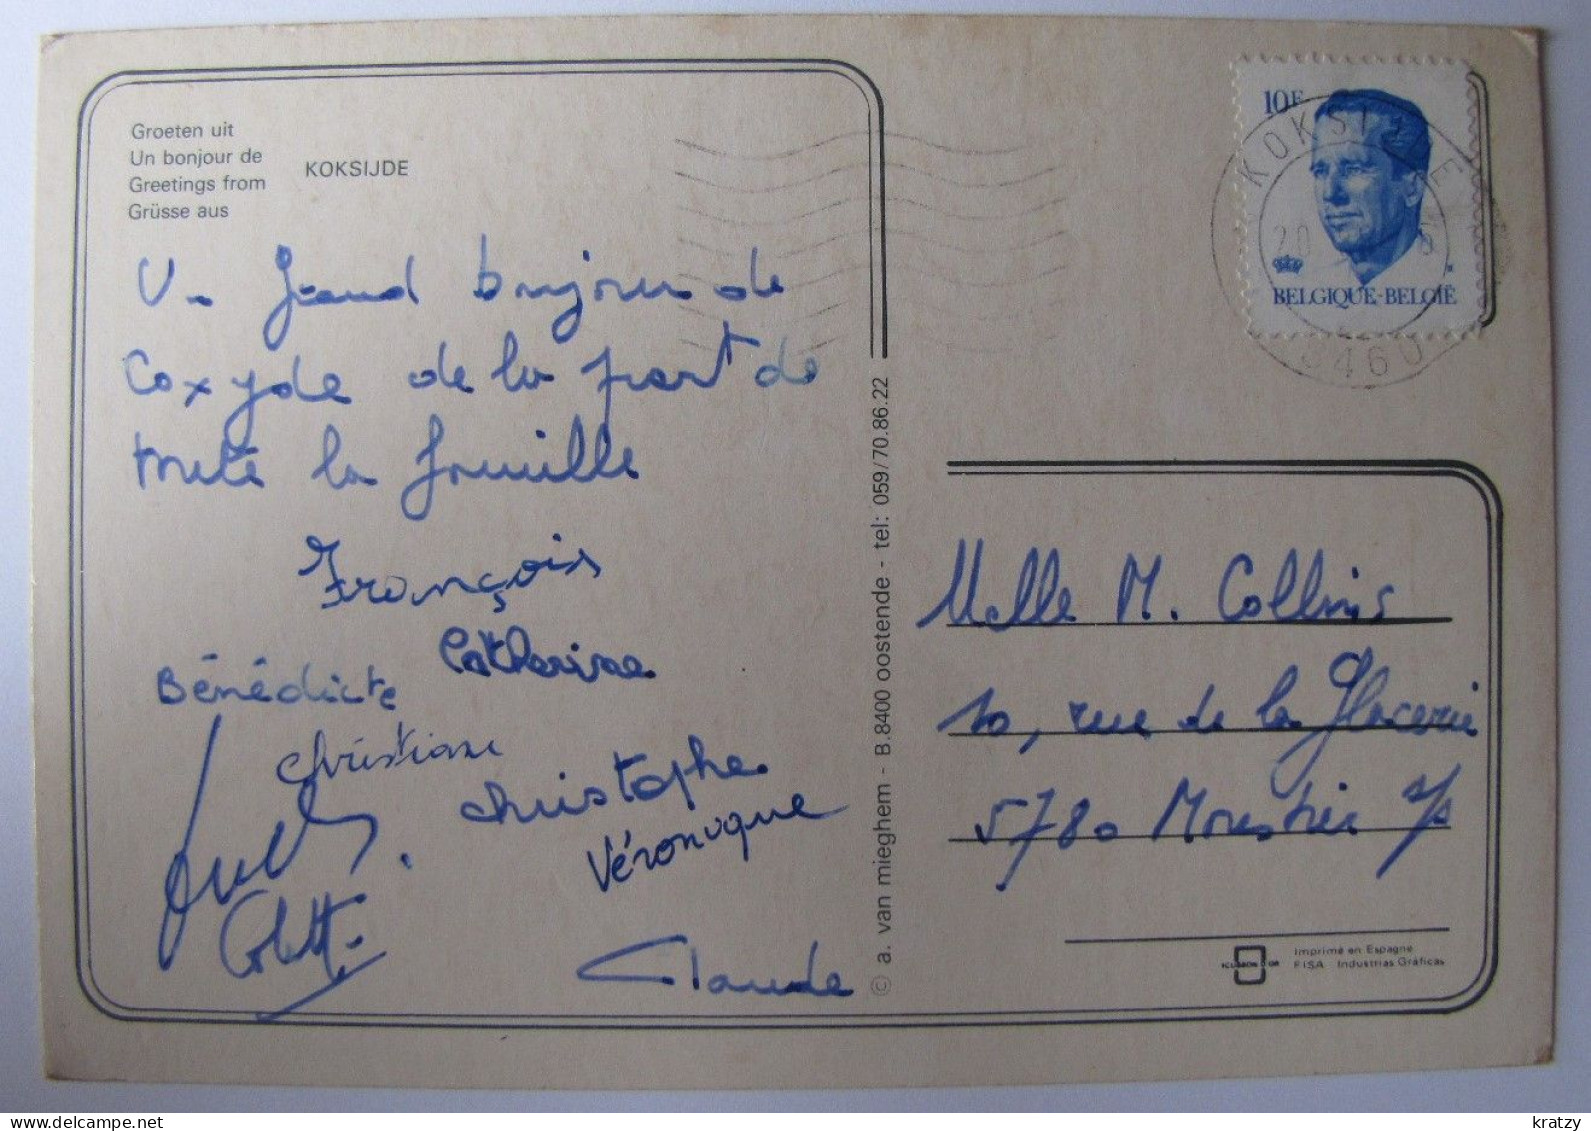 Groeten uit
Un bonjour de
Greetings from
Grüsse aus
KOKSIJDE
Un grand bonjour de
Coxyde de la part de
toute la famille
François
Catherine
Bénédicte
Christiane
Christophe
Véronique
Colette
Claude
© a. van mieghem - B.8400 oostende - tel: 059/70.86.22
10F
BELGIQUE-BELGIË
KOKSIJDE
20
8460
Melle M. Collins
10, rue de la Glacerie
5780 Moustier s/s
Imprimé en Espagne
FISA Industrias Gráficas
www.delcampe.net
kratzy